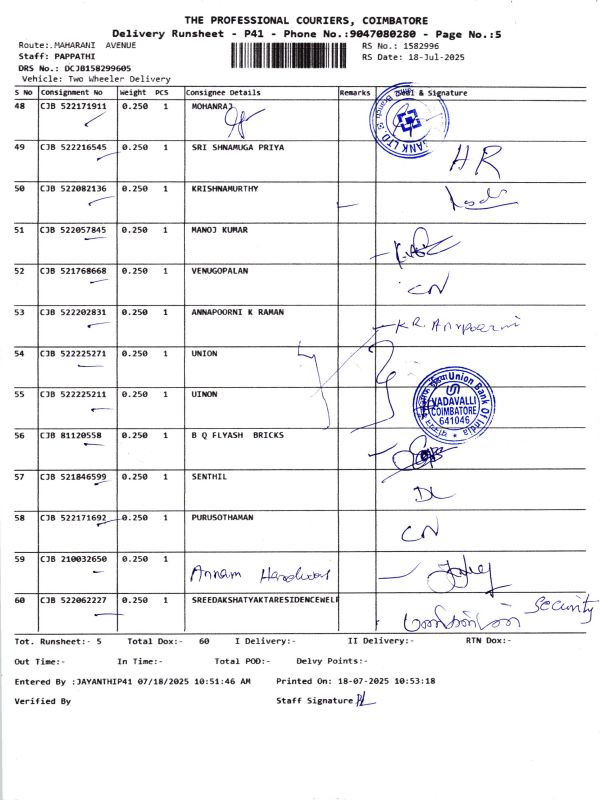 THE PROFESSIONAL COURIERS, COIMBATORE
Delivery Runsheet - P41 - Phone No.:9047080280 - Page No.:5
Route:.MAHARANI AVENUE
RS No.: 1582996
Staff: PAPPATHI
RS Date: 18-Jul-2025
DRS No.: DCJB158299605
Vehicle: Two Wheeler Delivery
S No Consignment No Weight PCS Consignee Details Remarks Seal & Signature
48 CJB 522171911 0.250 1 MOHANRAJ
BANK LTD.
49 CJB 522216545 0.250 1 SRI SHNAMUGA PRIYA HR
50 CJB 522082136 0.250 1 KRISHNAMURTHY
51 CJB 522057845 0.250 1 MANOJ KUMAR
52 CJB 521768668 0.250 1 VENUGOPALAN CN
53 CJB 522202831 0.250 1 ANNAPOORNI K RAMAN K.R. Annapoorni
54 CJB 522225271 0.250 1 UNION
55 CJB 522225211 0.250 1 UINON
Union Bank Of India
VADAVALLI
COIMBATORE
641046
56 CJB 81120558 0.250 1 B Q FLYASH BRICKS
57 CJB 521846599 0.250 1 SENTHIL DL
58 CJB 522171692 0.250 1 PURUSOTHAMAN CN
59 CJB 210032650 0.250 1 Annam
60 CJB 522062227 0.250 1 SREEDAKSHATYAKTARESIDENCEWELF Security
Tot. Runsheet:- 5 Total Dox:- 60 I Delivery:- II Delivery:- RTN Dox:-
Out Time:- In Time:- Total POD:- Delvy Points:-
Entered By :JAYANTHIP41 07/18/2025 10:51:46 AM Printed On: 18-07-2025 10:53:18
Verified By Staff Signature